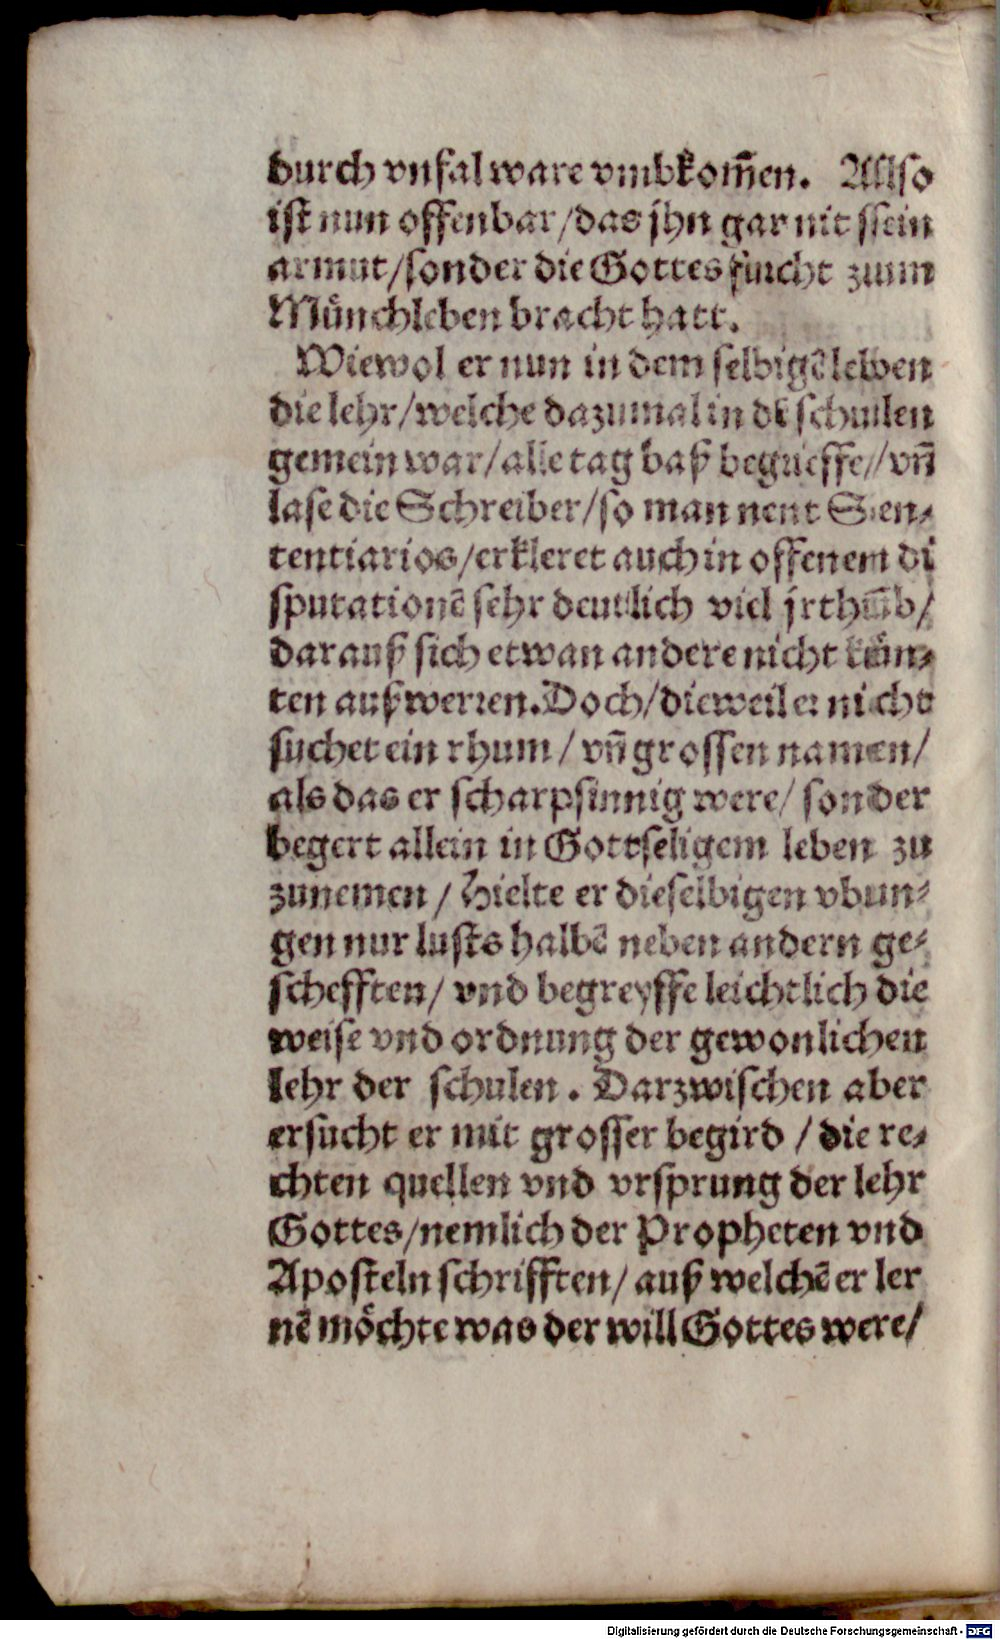 durch vnfal ware vmbkom̃en. Allso
ist nun offenbar/das jhn gar nit sein
armut/sonder die Gottes furcht zum
Münchleben bracht hatt.
Wiewol er nun in dem selbigē leben
die lehr/welche dazumal in dē schulen
gemein war/alle tag baß begrieffe/vñ
lase die Schreiber/so man nent Sen⸗
tentiarios/erkleret auch in offenem di
sputationē sehr deutlich viel jrthūb/
darauß sich etwan andere nicht kün⸗
ten außwerren. Doch/dieweil er nicht
suchet ein rhum/vñ grossen namen/
als das er scharpsinnig were/sonder
begert allein in Gottseligem leben zu
zunemen/Hielte er dieselbigen vbun⸗
gen nur lusts halbē neben andern ge⸗
schefften/vnd begreyffe leichtlich die
weise vnd ordnung der gewonlichen
lehr der schulen. Darzwischen aber
ersucht er mit grosser begird/die re⸗
chten quellen vnd vrsprung der lehr
Gottes/nemlich der Propheten vnd
Aposteln schrifften/auß welchē er ler
nē möchte was der will Gottes were/
Digitalisierung gefördert durch die Deutsche Forschungsgemeinschaft - DFG